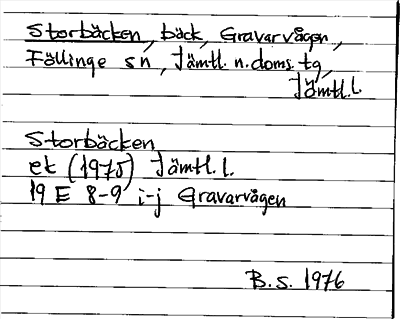 Storbäcken, bäck, Gravarvågen,
Föllinge sn, Jämtl. n. doms. tg,
Jämtl. l.
Storbäcken
ek (1975) Jämtl. l.
19 E 8-9 i-j Gravarvågen
B. S. 1976